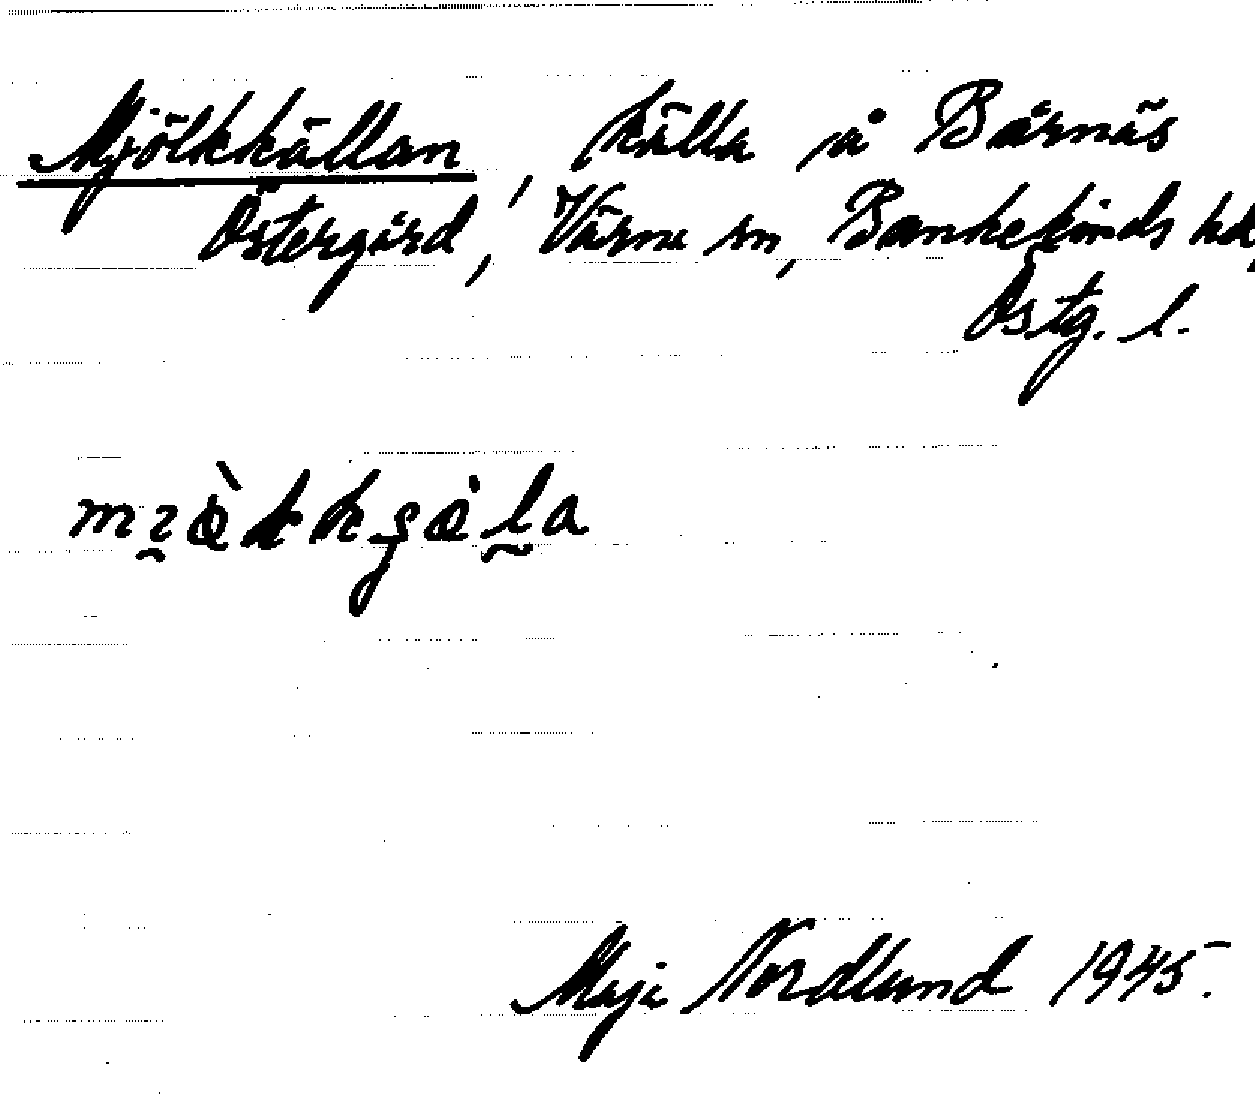 Mjölkkällan, källa å Bårnäs
Östergård, Värne sn, Bankekinds hd,
Östg. l.
Maja Nordlund 1945.